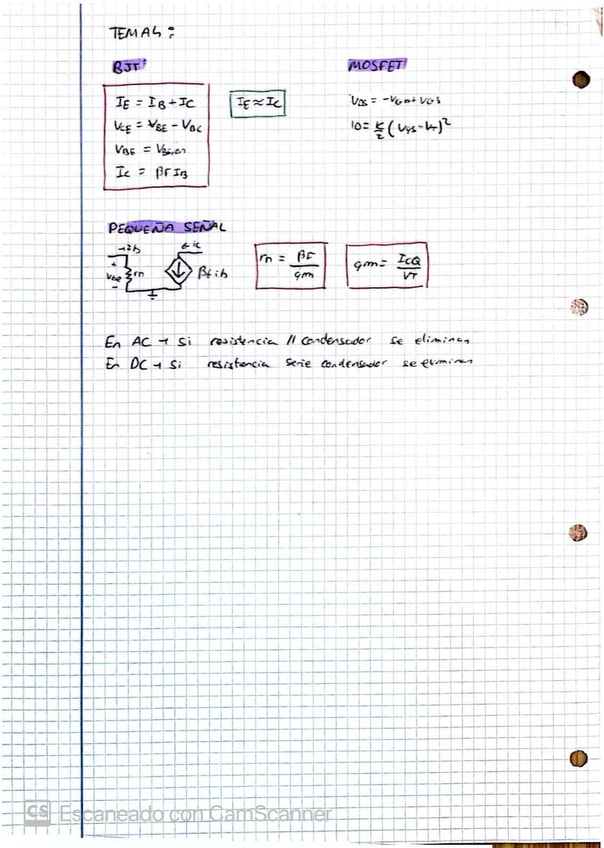 TEMA 4:
BJT
IE = IB + IC
VCE = VBE - VBC
VBE = VBE,on
IC = βF IB
IE ≈ IC
MOSFET
VDS = -VGD + VGS
ID = K/2 (VGS - VT)²
PEQUEÑA SEÑAL
→ ib
+
Vbe
-
rπ
← ic
βf ib
rπ = βF/gm
gm = ICQ/VT
En AC → Si resistencia // condensador se eliminan
En DC → Si resistencia serie condensador se eliminan
CS Escaneado con CamScanner